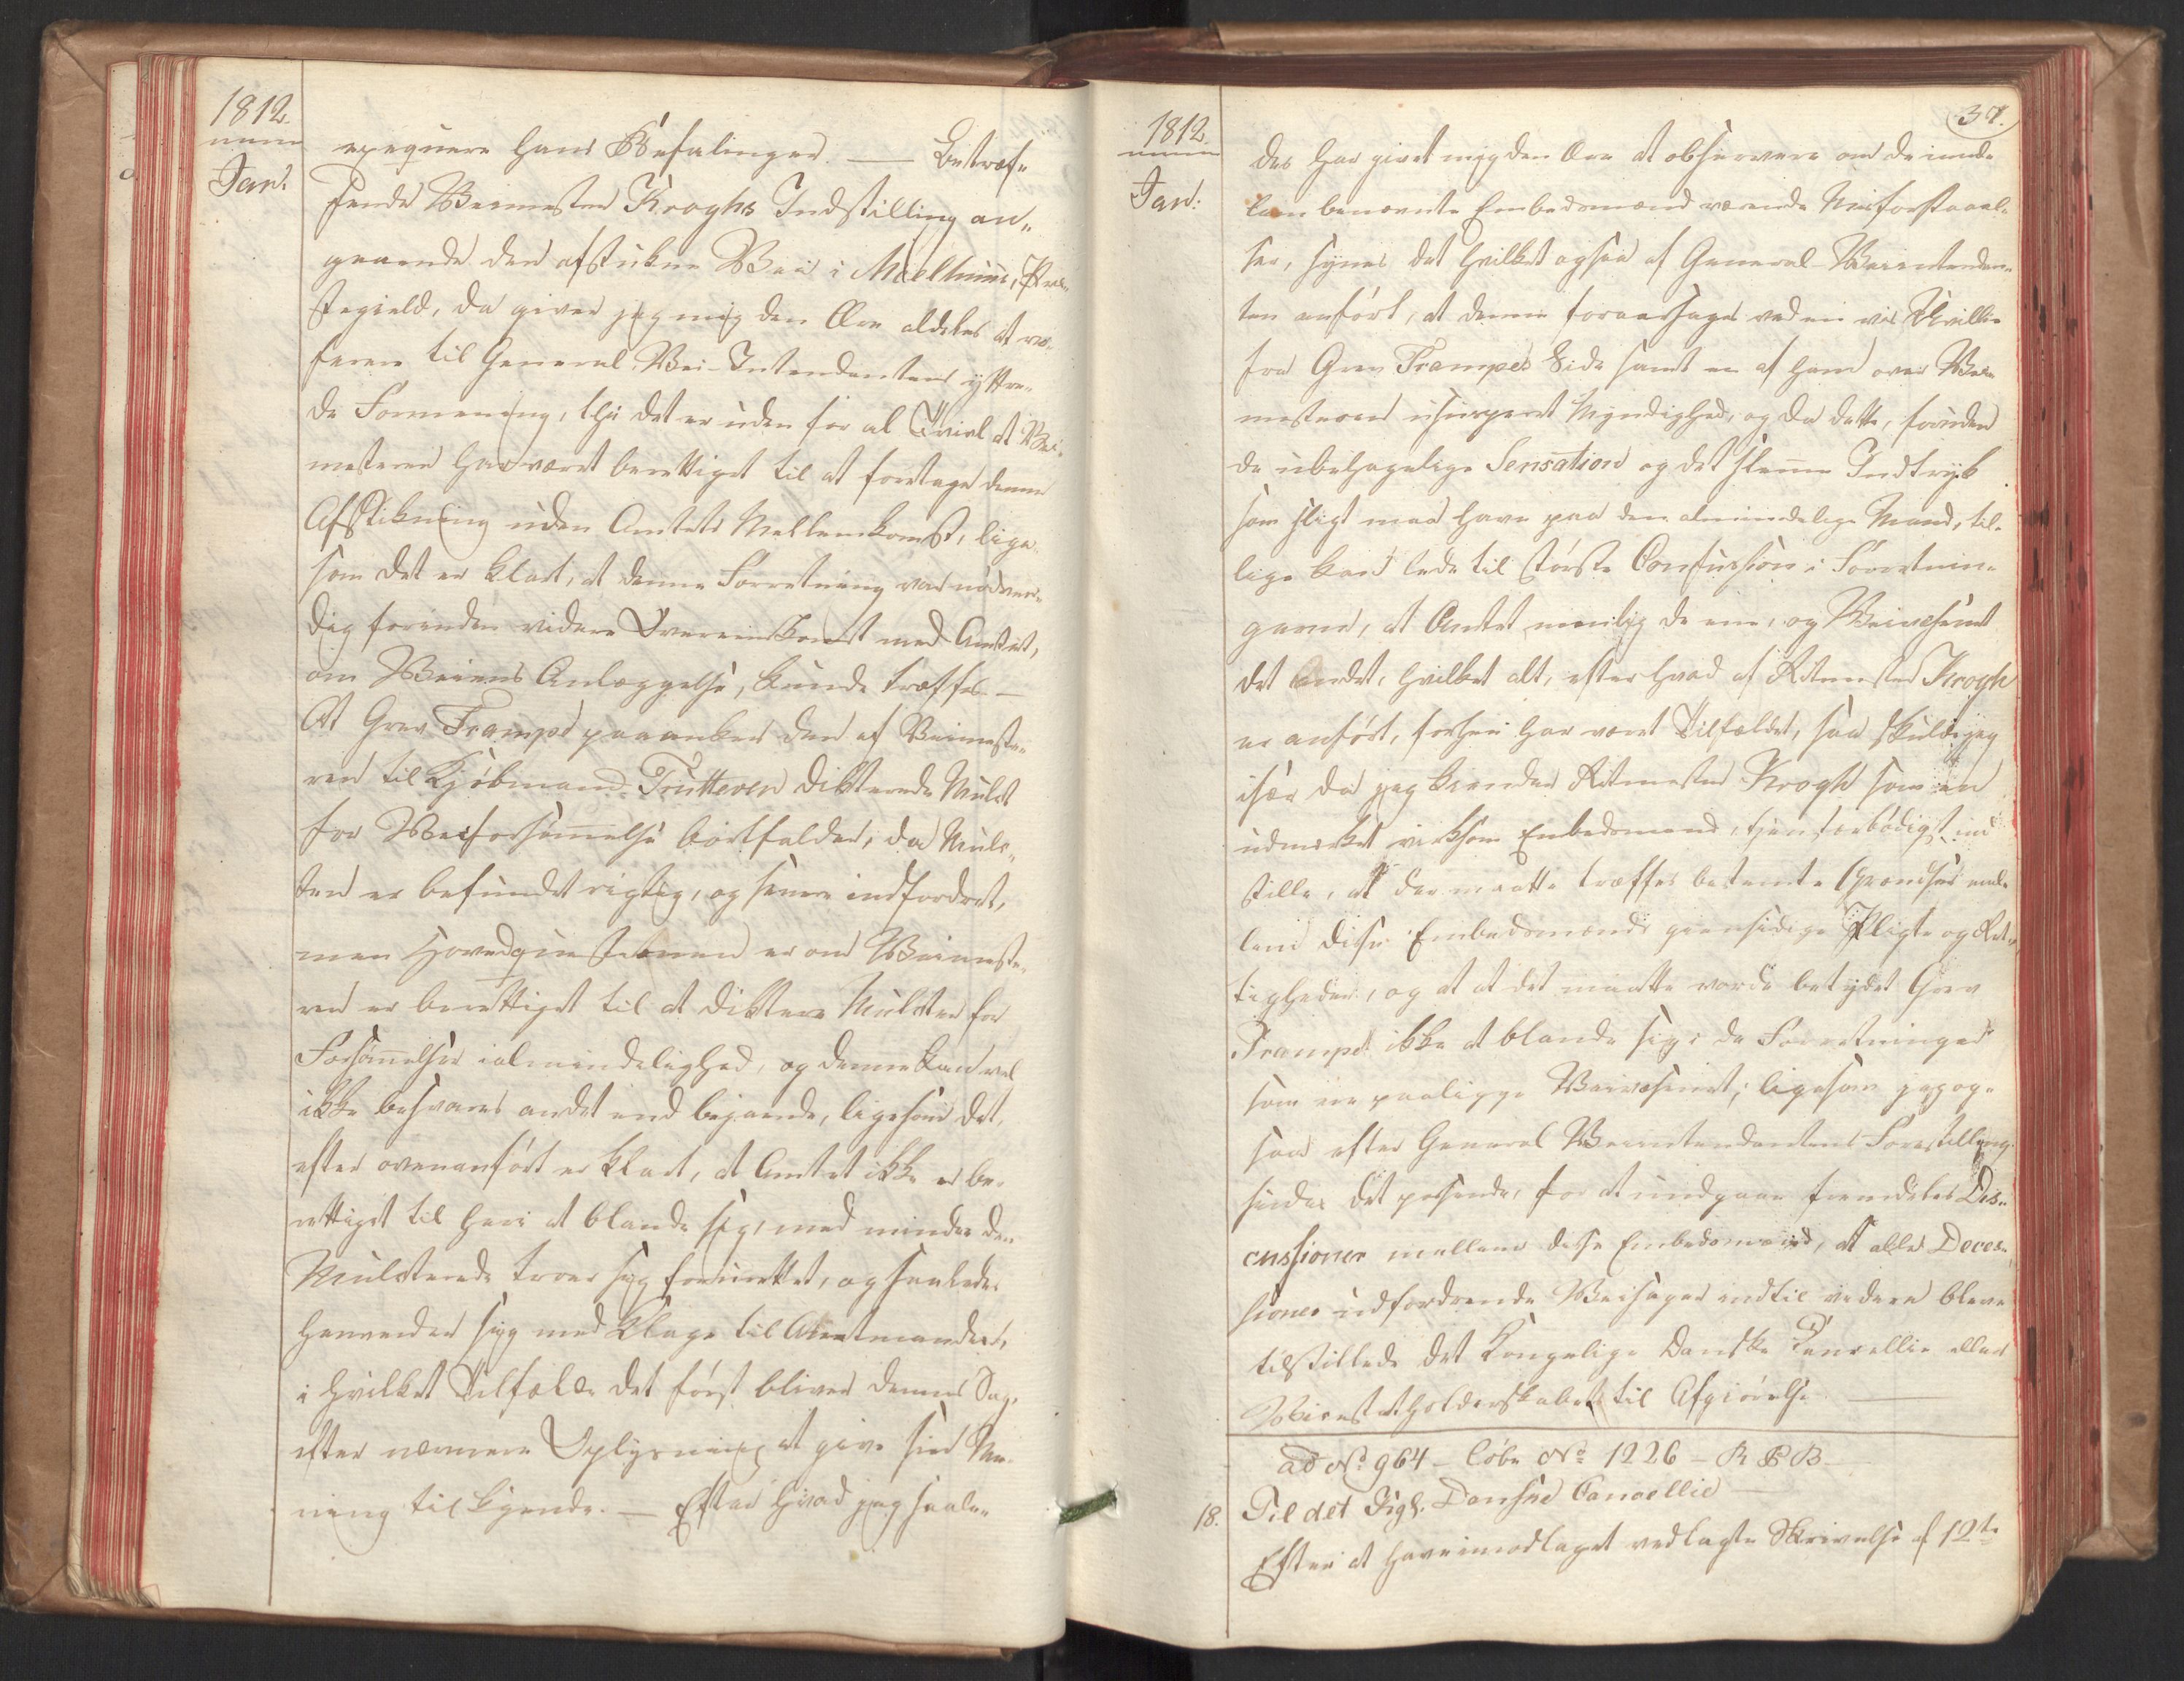 1812.
Jan:
exequere hans Befalinger. — Betræf-
fende Veimester Kroghs Indstilling an-
gaaende den afstukne Vei i Melhuus Præ-
stegield, da giver jeg mig den Ære aldeles at re-
ferere til General-Vei-Intendantens yttre-
de Formening, thi det er uden for al Tvivl at Vei-
mesteren har været berettiget til at foretage denne
Afstikning uden Amtets Mellemkomst, lige-
som det er klart, at denne Forretning var nødven-
dig forinden videre Overeenskomst med Amtet,
om Veiens Anlæggelse, kunde træffes. —
At Grev Trampe paaanker den af Veimeste-
ren til Kjøbmand Trutteven dikterede Mulct
for Veiforsømmelse bortfalder, da Mulc-
ten er befundet rigtig, og senere indfordret,
men Hovedquestionen er om Veimeste-
ren er berettiget til at diktere Mulcter for
Forsømmelser i almindelighed, og denne kan vel
ikke besvares andet end bejaende, ligesom det,
efter ovenanført er klart, at Amtet ikke er be-
rettiget til heri at blande sig, med mindre den
Mulcterede troer sig forurettet, og saaledes
henvender sig med Klage til Amtmanden,
i hvilket Tilfælde det først bliver dennes Sag,
efter nærmere Oplysning at give sin Me-
ning tilkjende. — Efter hvad jeg saale-
37.
1812.
Jan:
des har givet mig den Ære at observere om de imel-
lem benævnte Embedsmænd værende Misforstaael-
ser, synes det hvilket ogsaa af General-Veiintendan-
ten anført, at denne foraarsages ved en vis Uvillie
fra Grev Trampes Side samt en af ham over Vei-
mesteren usurperet Myndighed, og da dette, foruden
de ubehagelige Sensation og det slemme Indtryk
som sligt maa have paa den almindelige Mand, til-
lige kan lede til største Confussion i Forretnin-
gerne, at Amtet meenlig de ene, og Veivesenet
det Andet, hvilket alt, efter hvad af Ritmester Krogh
er anført, forhen har været Tilfældet, saa skulde jeg
især da jeg kiender Ritmester Krogh som en
udmerket virksom Embedsmand, tjenstærbødigst ind-
stille, at der maatte træffes bestemte Grændser mel-
lem disse Embedsmænds giensidige Pligte og Ret-
tigheder, og at at det maatte vorde betydet Grev
Trampe ikke at blande sig i de Forretninger
som ere paaligge Veivæsenet; ligesom jeg og-
saa efter General Veiintendantens Forestilling
finder det passende, for at undgaae fremdeles Dis-
cussioner mellem disse Embedsmænd, at alle Deces-
sioner udfordrende Veisager indtil videre bleve
tilstillede det Kongelige Danske Cancellie eller
Vicestatholderskabet til Afgiørelse. —
ad No: 964 – Løbe No 1226 – R P B
18. Til det Kigl. Danske Cancellie
Efter at have imodtaget vedlagte Skrivelse af 12te